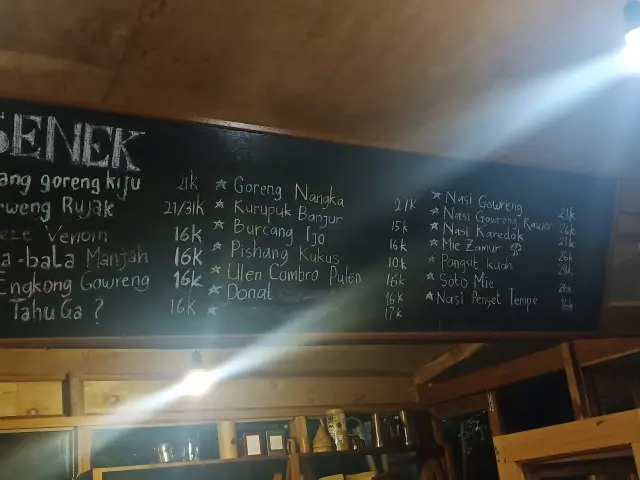 SENEK
ang goreng kiju 21k
rweng Rujak 21/31k
Venom 16k
a-bala Manjah 16k
Engkong Gowreng 16k
Tahu Ga ? 16k
Goreng Nangka 21k
Kurupuk Banjur 15k
Burcang Ijo 16k
Pishang Kukus 10k
Ulen Combro Puten 16k
Donat 16k
17k
Nasi Gowreng 21k
Nasi Gowreng
Nasi Karedok 21k
Mie Zamur
Pangsit kuah 26k
Soto Mie 26k
Nasi Penyet Tempe 16k